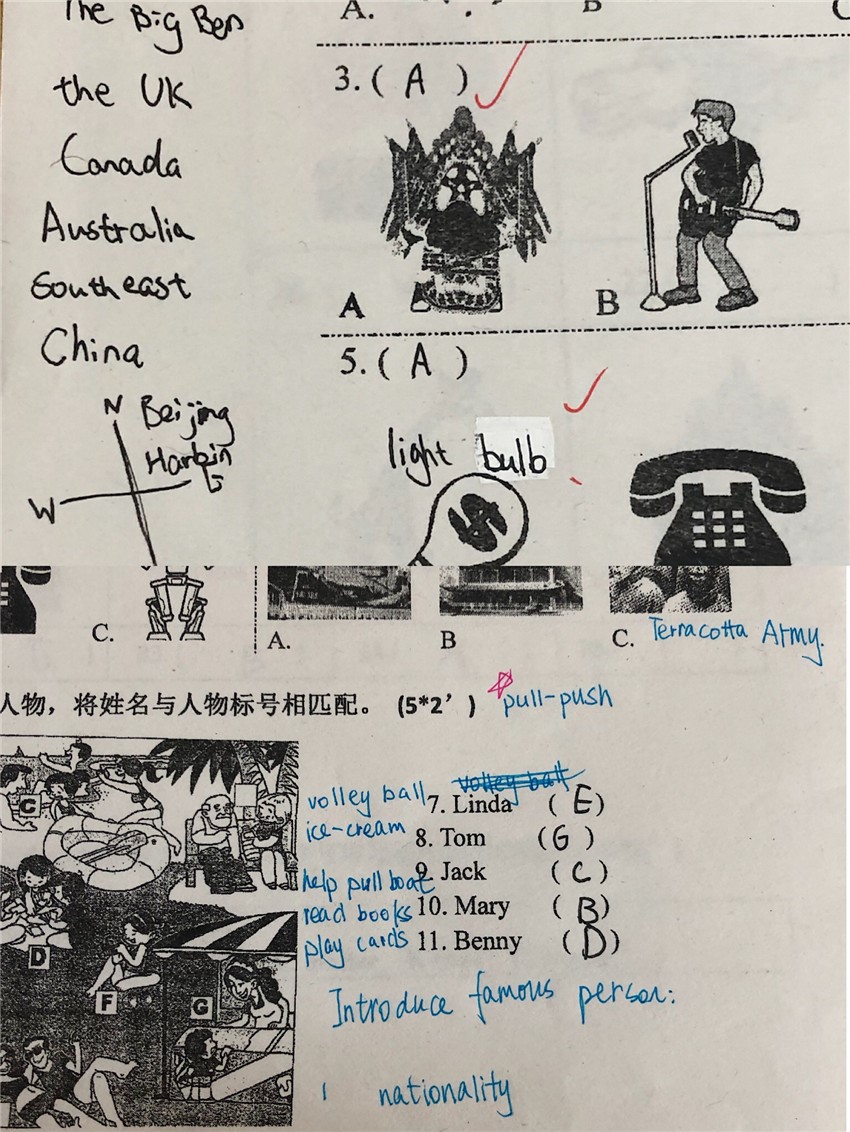 The Big Ben
the UK
Canada
Australia
Southeast
China
N Beijing
Harbin
W
A. B C
3. ( A )
A B
5. ( A )
light bulb
C. A. B C. Terracotta Army.
人物，将姓名与人物标号相匹配。 (5*2' ) pull-push
volley ball 7. Linda ( E )
ice-cream 8. Tom ( G )
help pull boat 9. Jack ( C )
read books 10. Mary ( B )
play cards 11. Benny ( D )
C
D
F G
Introduce famous person:
nationality